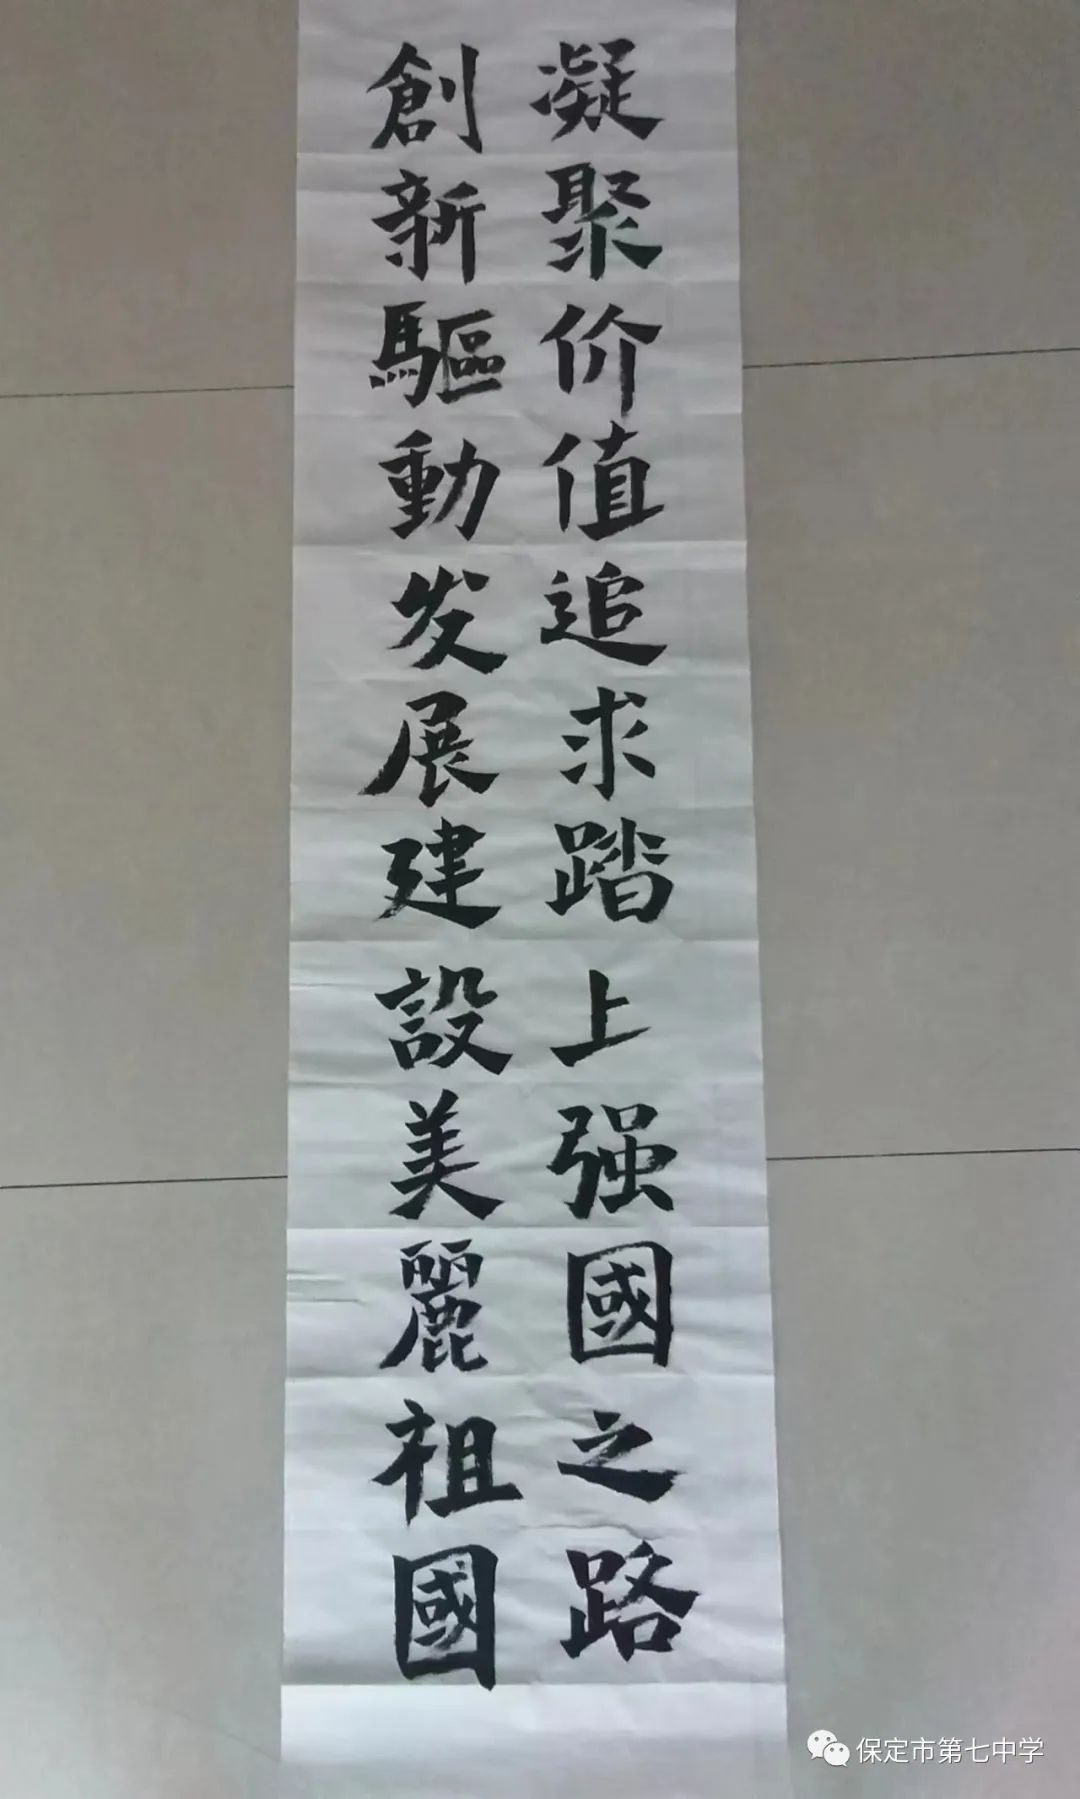 凝聚价值追求踏上强國之路
創新驅動发展建設美麗祖國
保定市第七中学